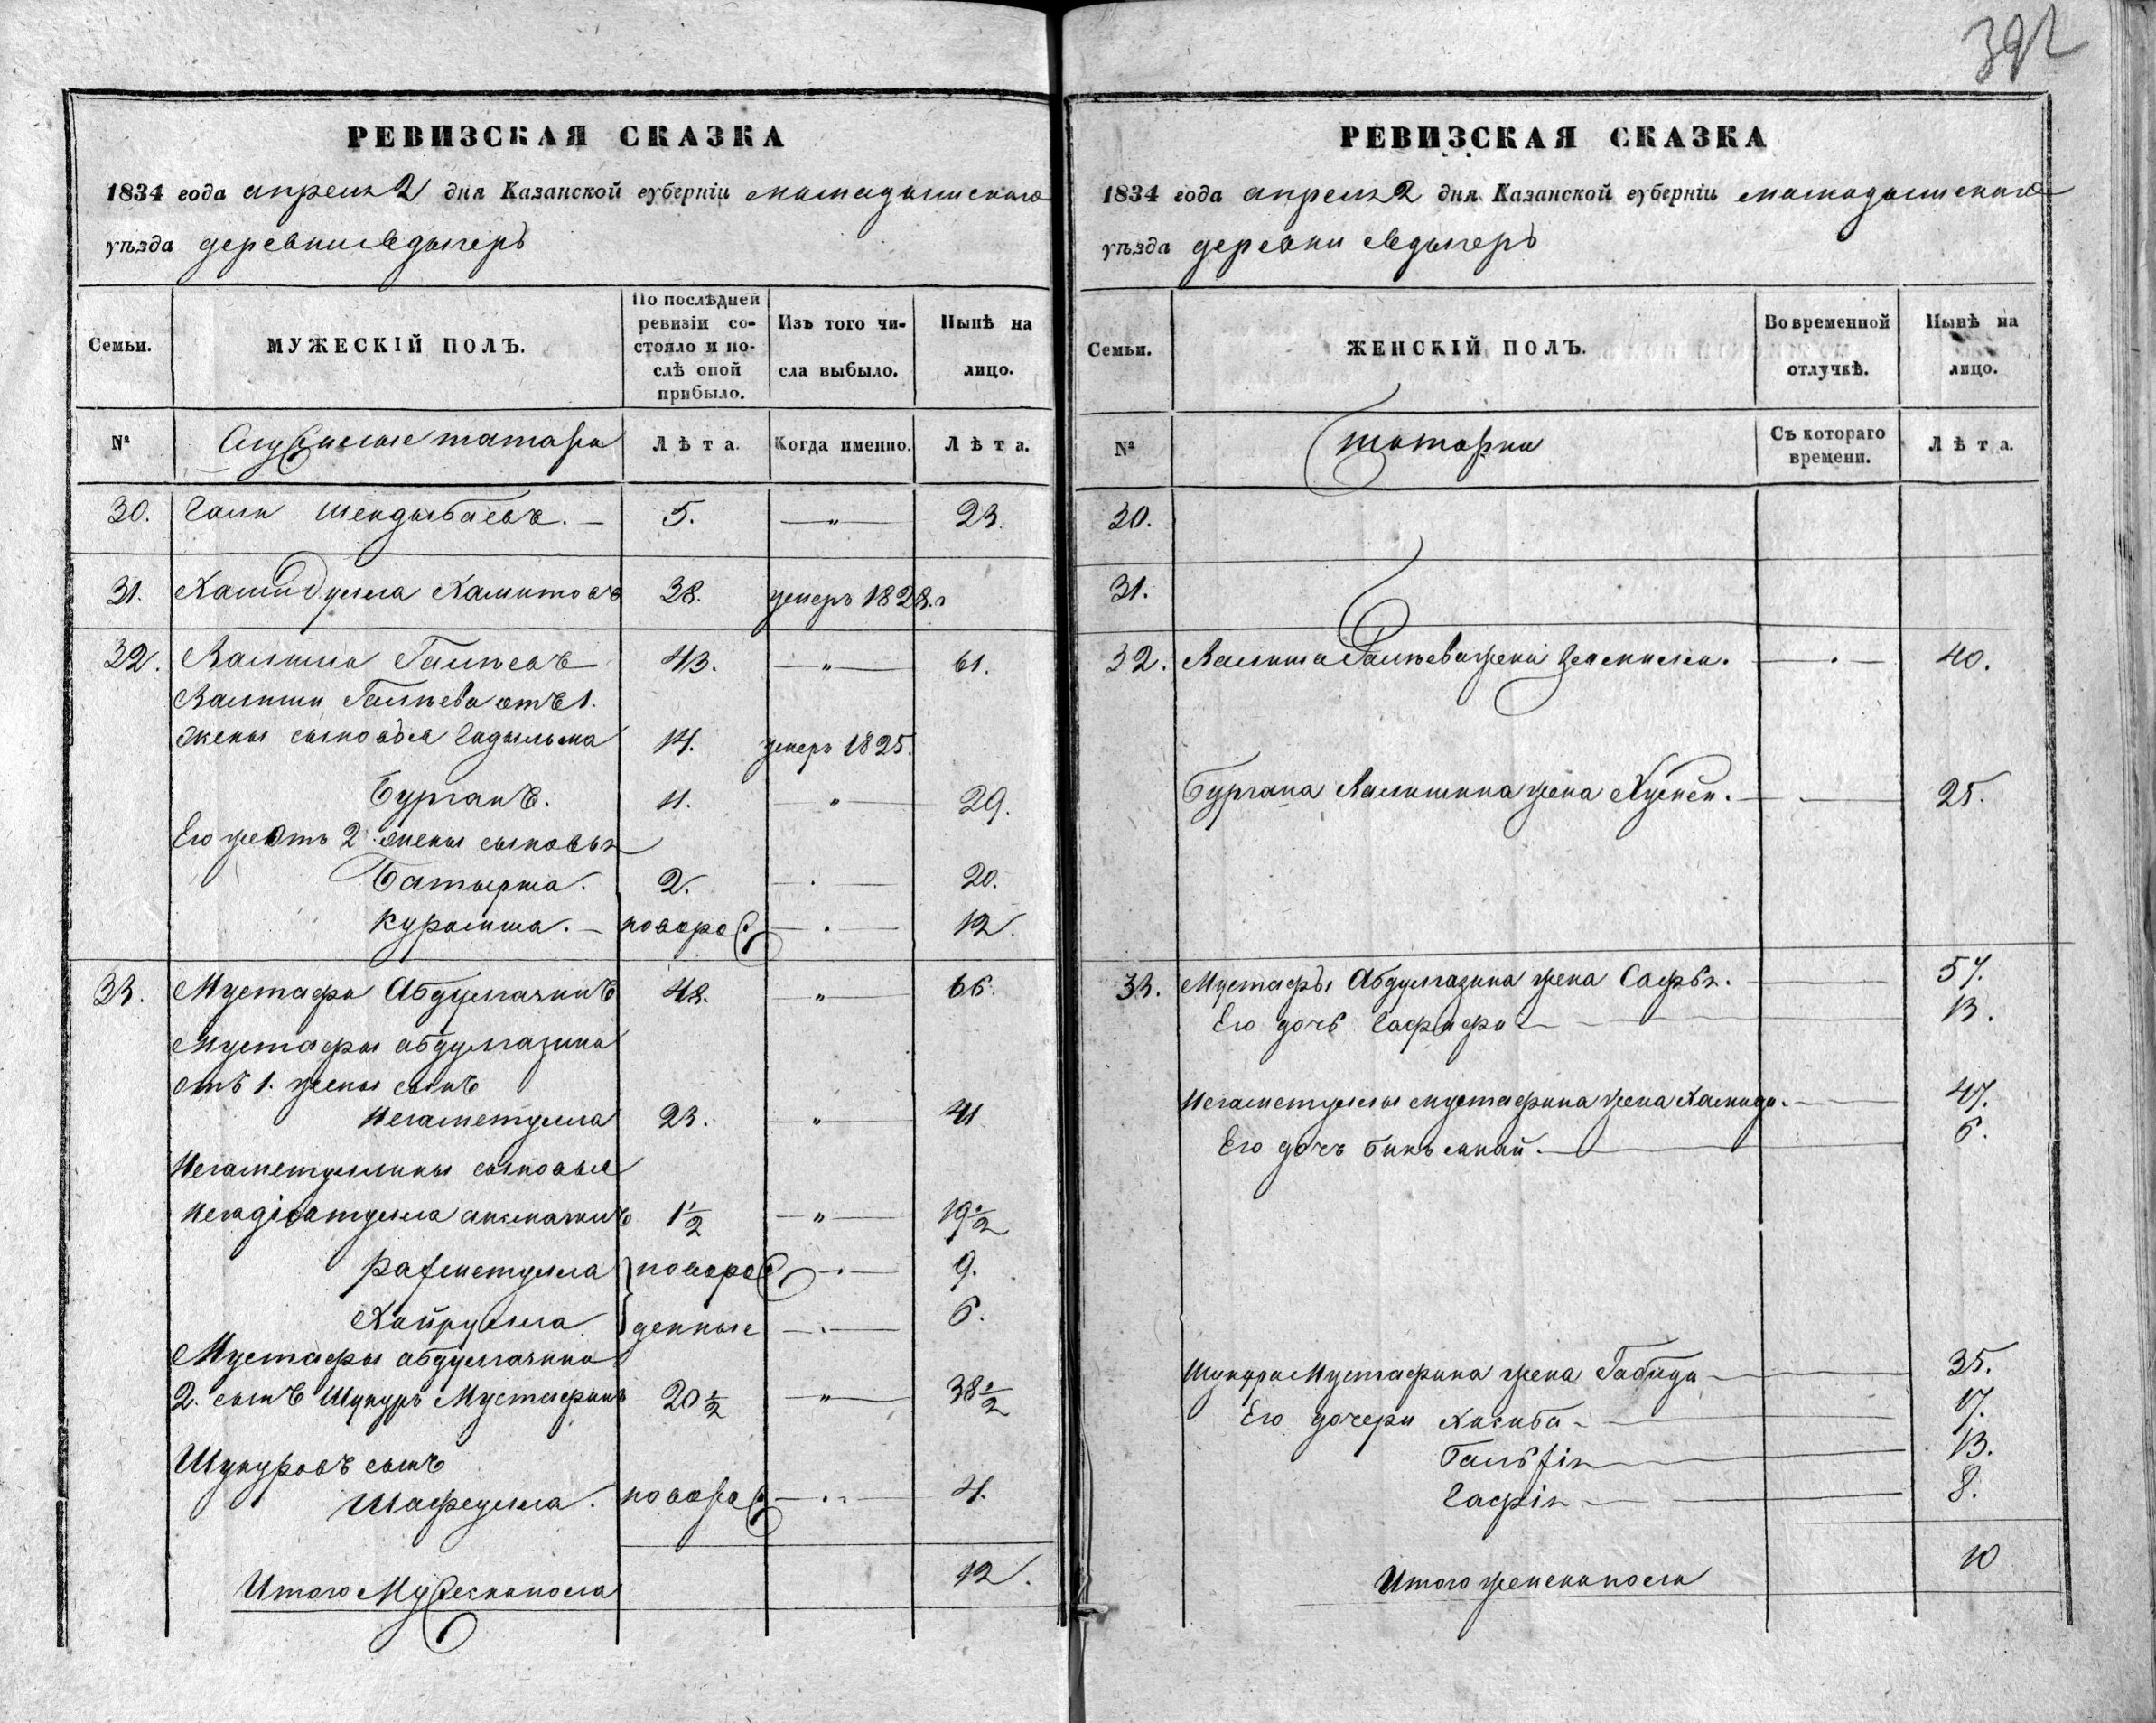 392
РЕВИЗСКАЯ СКАЗКА
1834 года апреля 2 дня Казанской губерніи мамадышскаго
уѣзда деревни Едыгеръ
Семьи.
МУЖЕСКІЙ ПОЛЪ.
По послѣдней ревизіи со-
стояло и по-
слѣ оной
прибыло.
Изъ того чи-
сла выбыло.
Нынѣ на
лицо.
№
Служилые татара
Лѣта.
Когда именно.
Лѣта.
30. Гали Шендыбаевъ. 5. — „ — 23.
31. Хамидулла Хамитовъ 38. умеръ 1828.г
32. Валиша Галѣевъ 43. — „ — 61.
Валиши Галѣева отъ 1.
жены сыновья Гадыльша 14. умеръ 1825.
Бурганъ. 11. „ 29.
Его же отъ 2. жены сыновья
Батырша. 2. — . — 20.
Курамша. — новорож — . — 12.
33. Мустафа Абдулгазинъ 48. „ 66.
Мустафы абдулгазина
отъ 1. жены сынъ
Негаметулла 23. — „ — 41
Негаметуллины сыновья
1½ — „ — 19½
Рахметулла } новорож — . — 9.
Хайрулла } денные — . — 6.
Мустафы абдулгазина
2. сынъ Шукуръ Мустафинъ 20½ — „ — 38½
Шукуровъ сынъ
Шафеулла. новорож — . — 4.
Итого Мужеска пола 12.
РЕВИЗСКАЯ СКАЗКА
1834 года апреля 2 дня Казанской губерніи мамадышскаго
уѣзда деревни Едыгеръ
Семьи.
ЖЕНСКІЙ ПОЛЪ.
Во временной
отлучкѣ.
Нынѣ на
лицо.
№
татарки
Съ котораго
времени.
Лѣта.
30.
31.
32. Валиша Галѣева жена — . — 40.
Бургана Валишина жена — . — 25.
33. Мустафы Абдулгазина жена Сафья. — 57.
Его дочь Гафифа — 13.
Негаметуллы мустафина жена Хамида. — 47.
Его дочь — 6.
Шукура Мустафина жена Габида — 35.
Его дочери Хасиба — 17.
Галбфія — 13.
Гафія — 8.
Итого женска пола 10